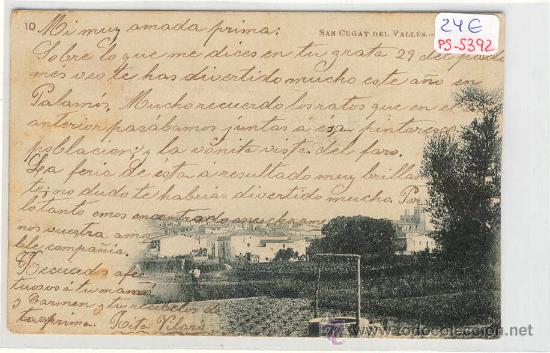 10
SAN CUGAT DEL VALLÉS.
24€
PS-5392
Mi muy amada prima:
Sobre lo que me dices en tu grata 29 del
mes veo te has divertido mucho este año en
Palamós, Mucho recuerdo los ratos que en el
anterior pasábamos juntas á esa pintoresca
poblacion; y la vonita vista del faro.
La feria de ésta a resultado muy
te; no dudo te habrias divertido mucho Por
lo tanto emos encontrado mucha
nos vuestra
ble compañia.
Recuerdos
tuosos á tu mamá
y Carmen y tu
prima. Rita Vilaró
todocoleccion.net